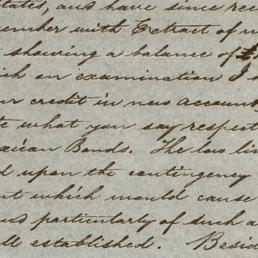 tates, and have since rece
ember with Extract of
shewing a balance of £
ich on examination I
ur credit in new account
te what you say respect
Bonds. The low li
d upon the contingency
nt which would cause
us particularly of such a
ll established. Besid